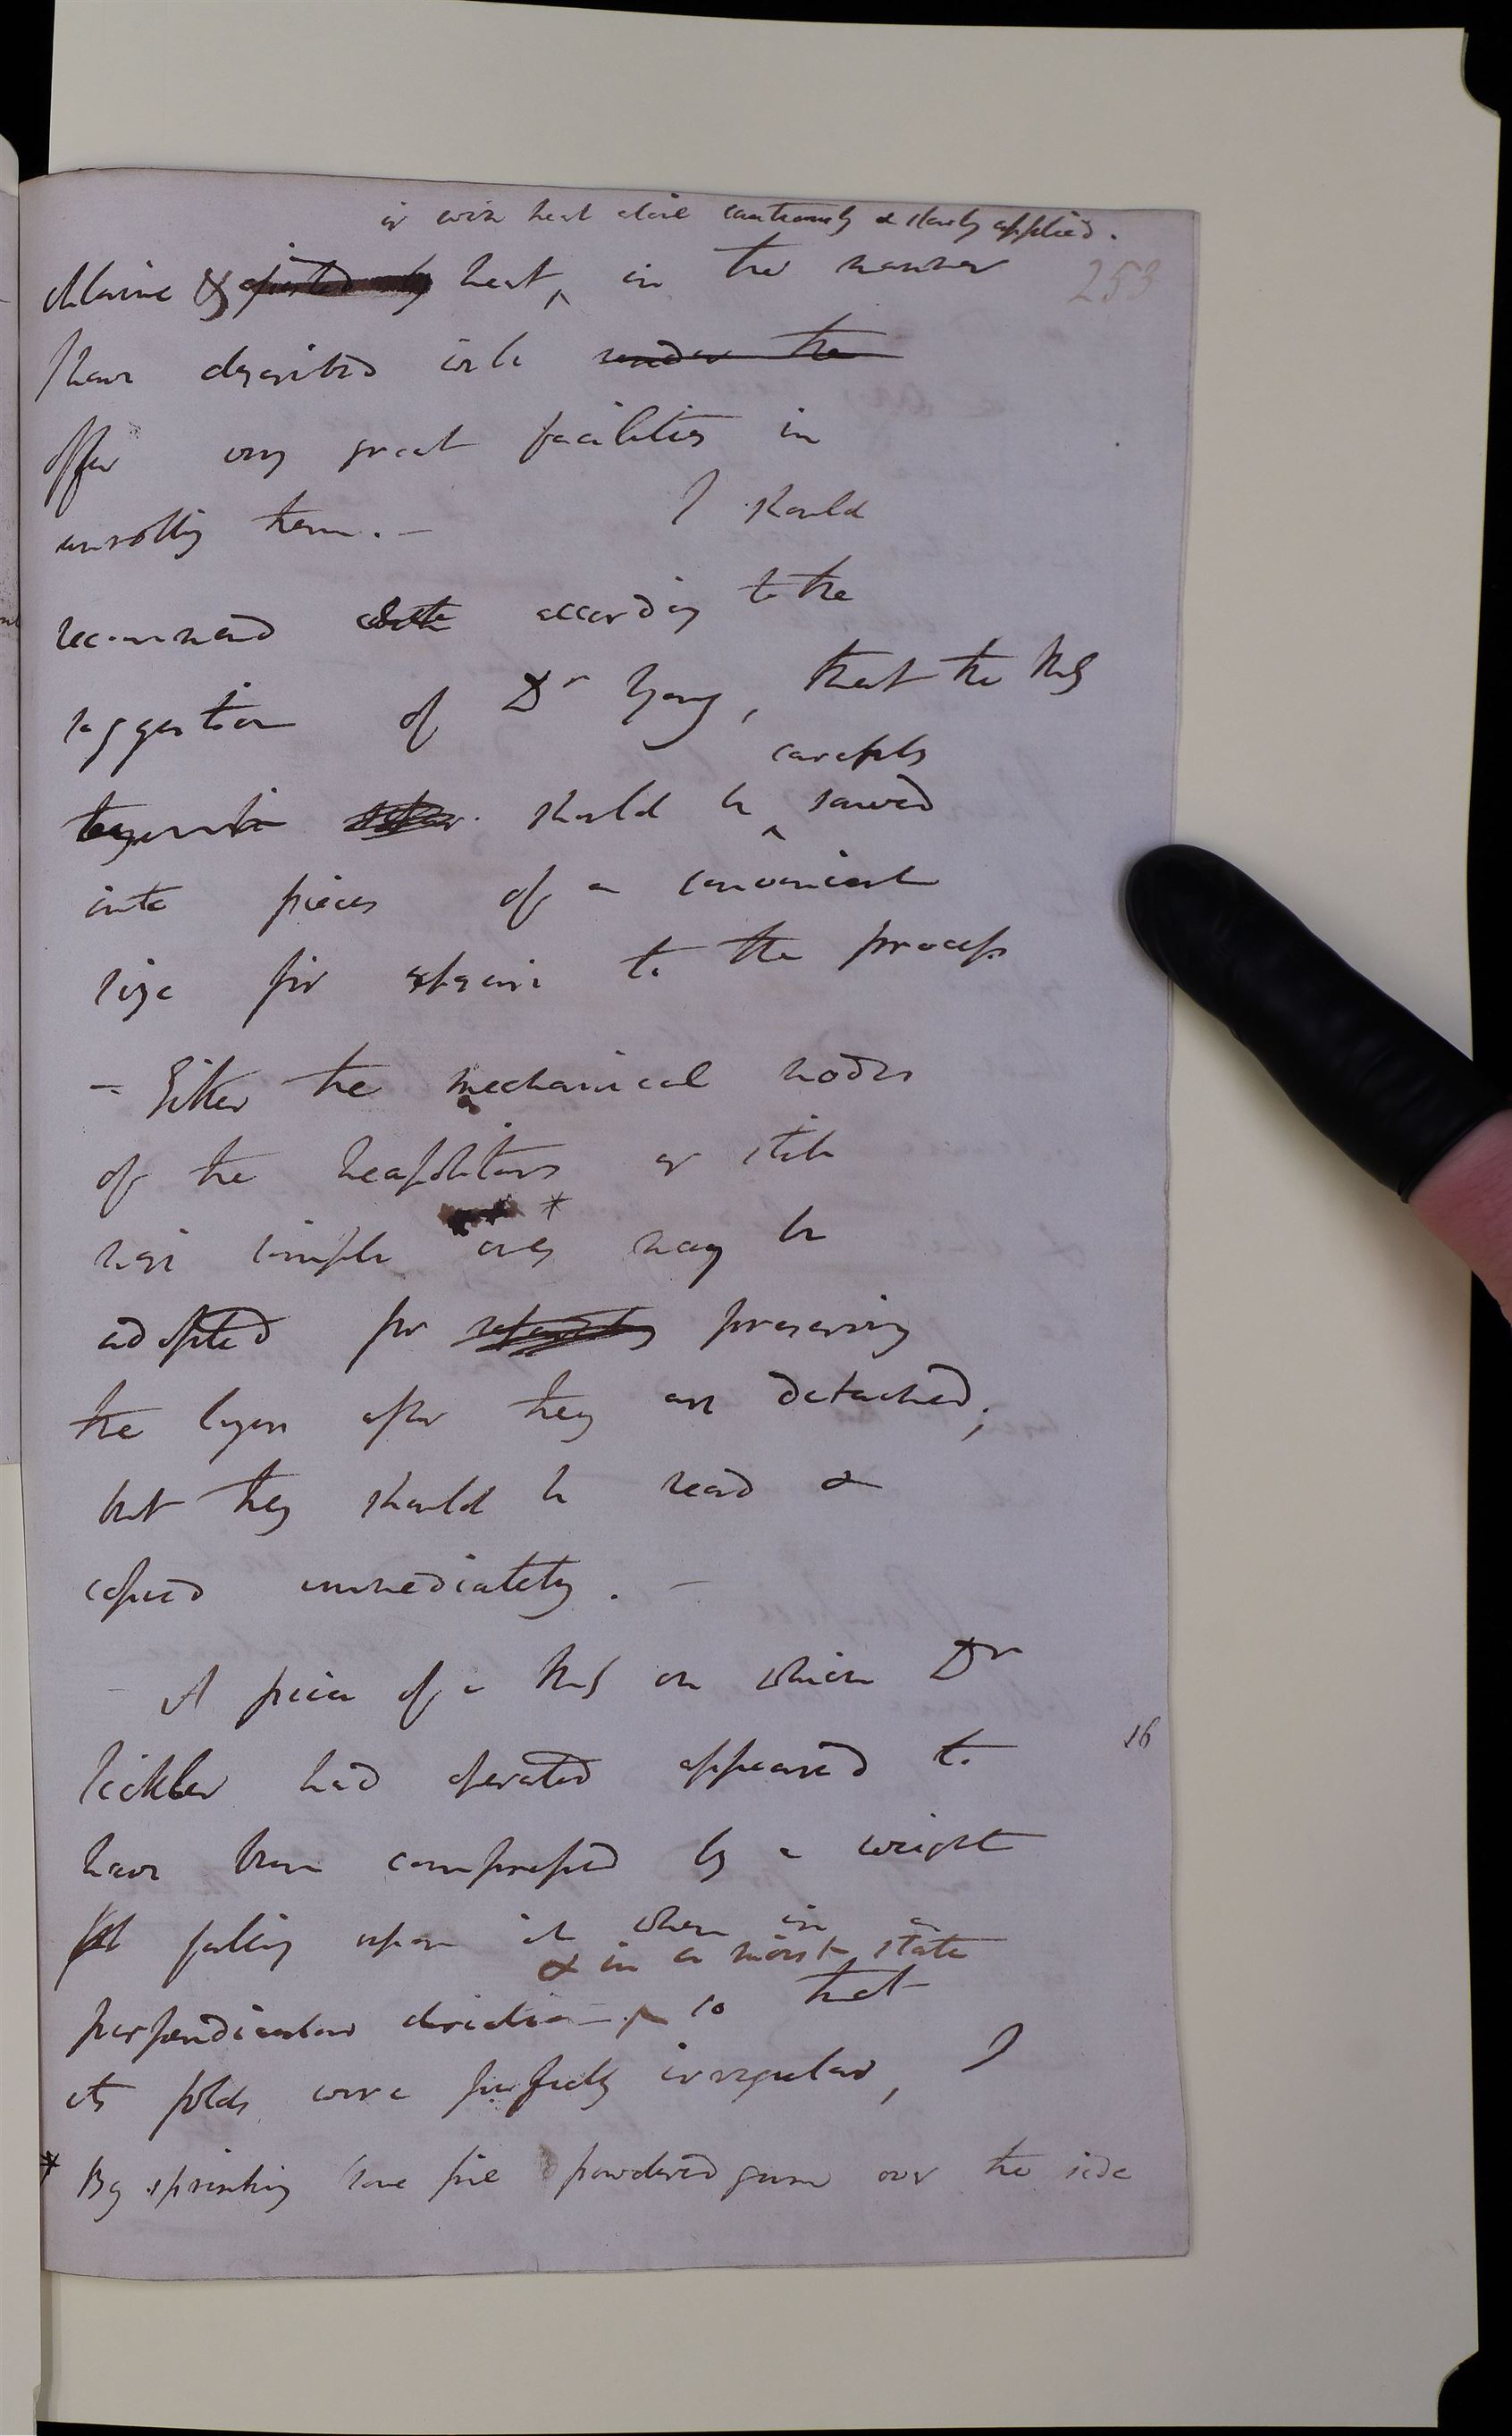 or with heat alone cautiously & slowly applied.
chlorine & heat, in the manner
253
I have described will render the
offer very great facilities in
unrolling them. — I should
recommend according to the
suggestion of Dr Young, that the MSS
carefully
should be sawed
into pieces of a convenient
size for exposure to the process
— Either the mechanical modes
of the Neapolitans or still
more simple ones * may be
adopted for preserving
the layers after they are detached;
but they should be read &
copied immediately. —
— A piece of a MS on which Dr
16
Sickler had operated appeared to
have been compressed by a weight
falling upon it when in a
& in a moist state
perpendicular direction so that
its folds were perfectly irregular, I
* By sprinkling some fine powdered gum over the side